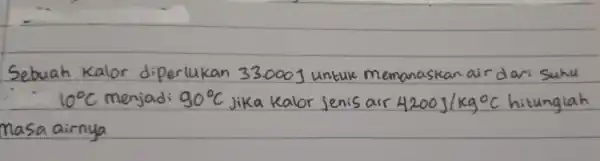 Sebuah Kalor diperlukan 33.000 J untuk memanaskan air dari Suhu
10°C menjadi 90°C Jika Kalor Jenis air 4200 J/kg°C hitunglah
masa airnya